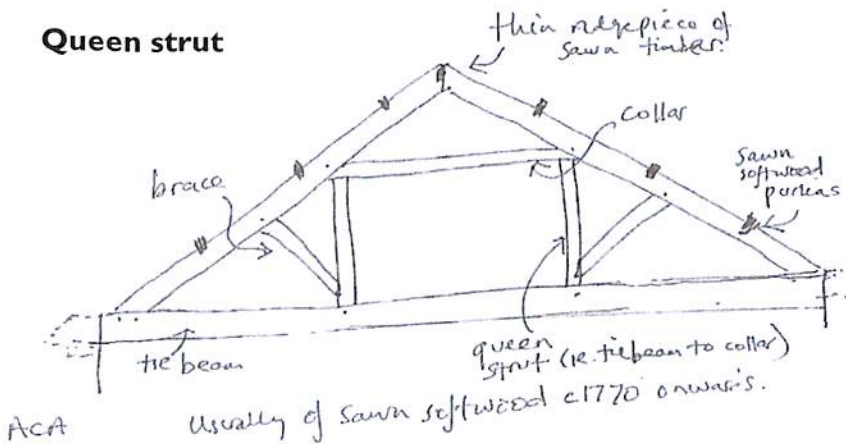 Queen strut
thin ridgepiece of
sawn timber.
collar
sawn
softwood
purlins
brace
tie beam
queen
strut (ie. tiebeam to collar)
ACA
Usually of sawn softwood c1770 onwards.